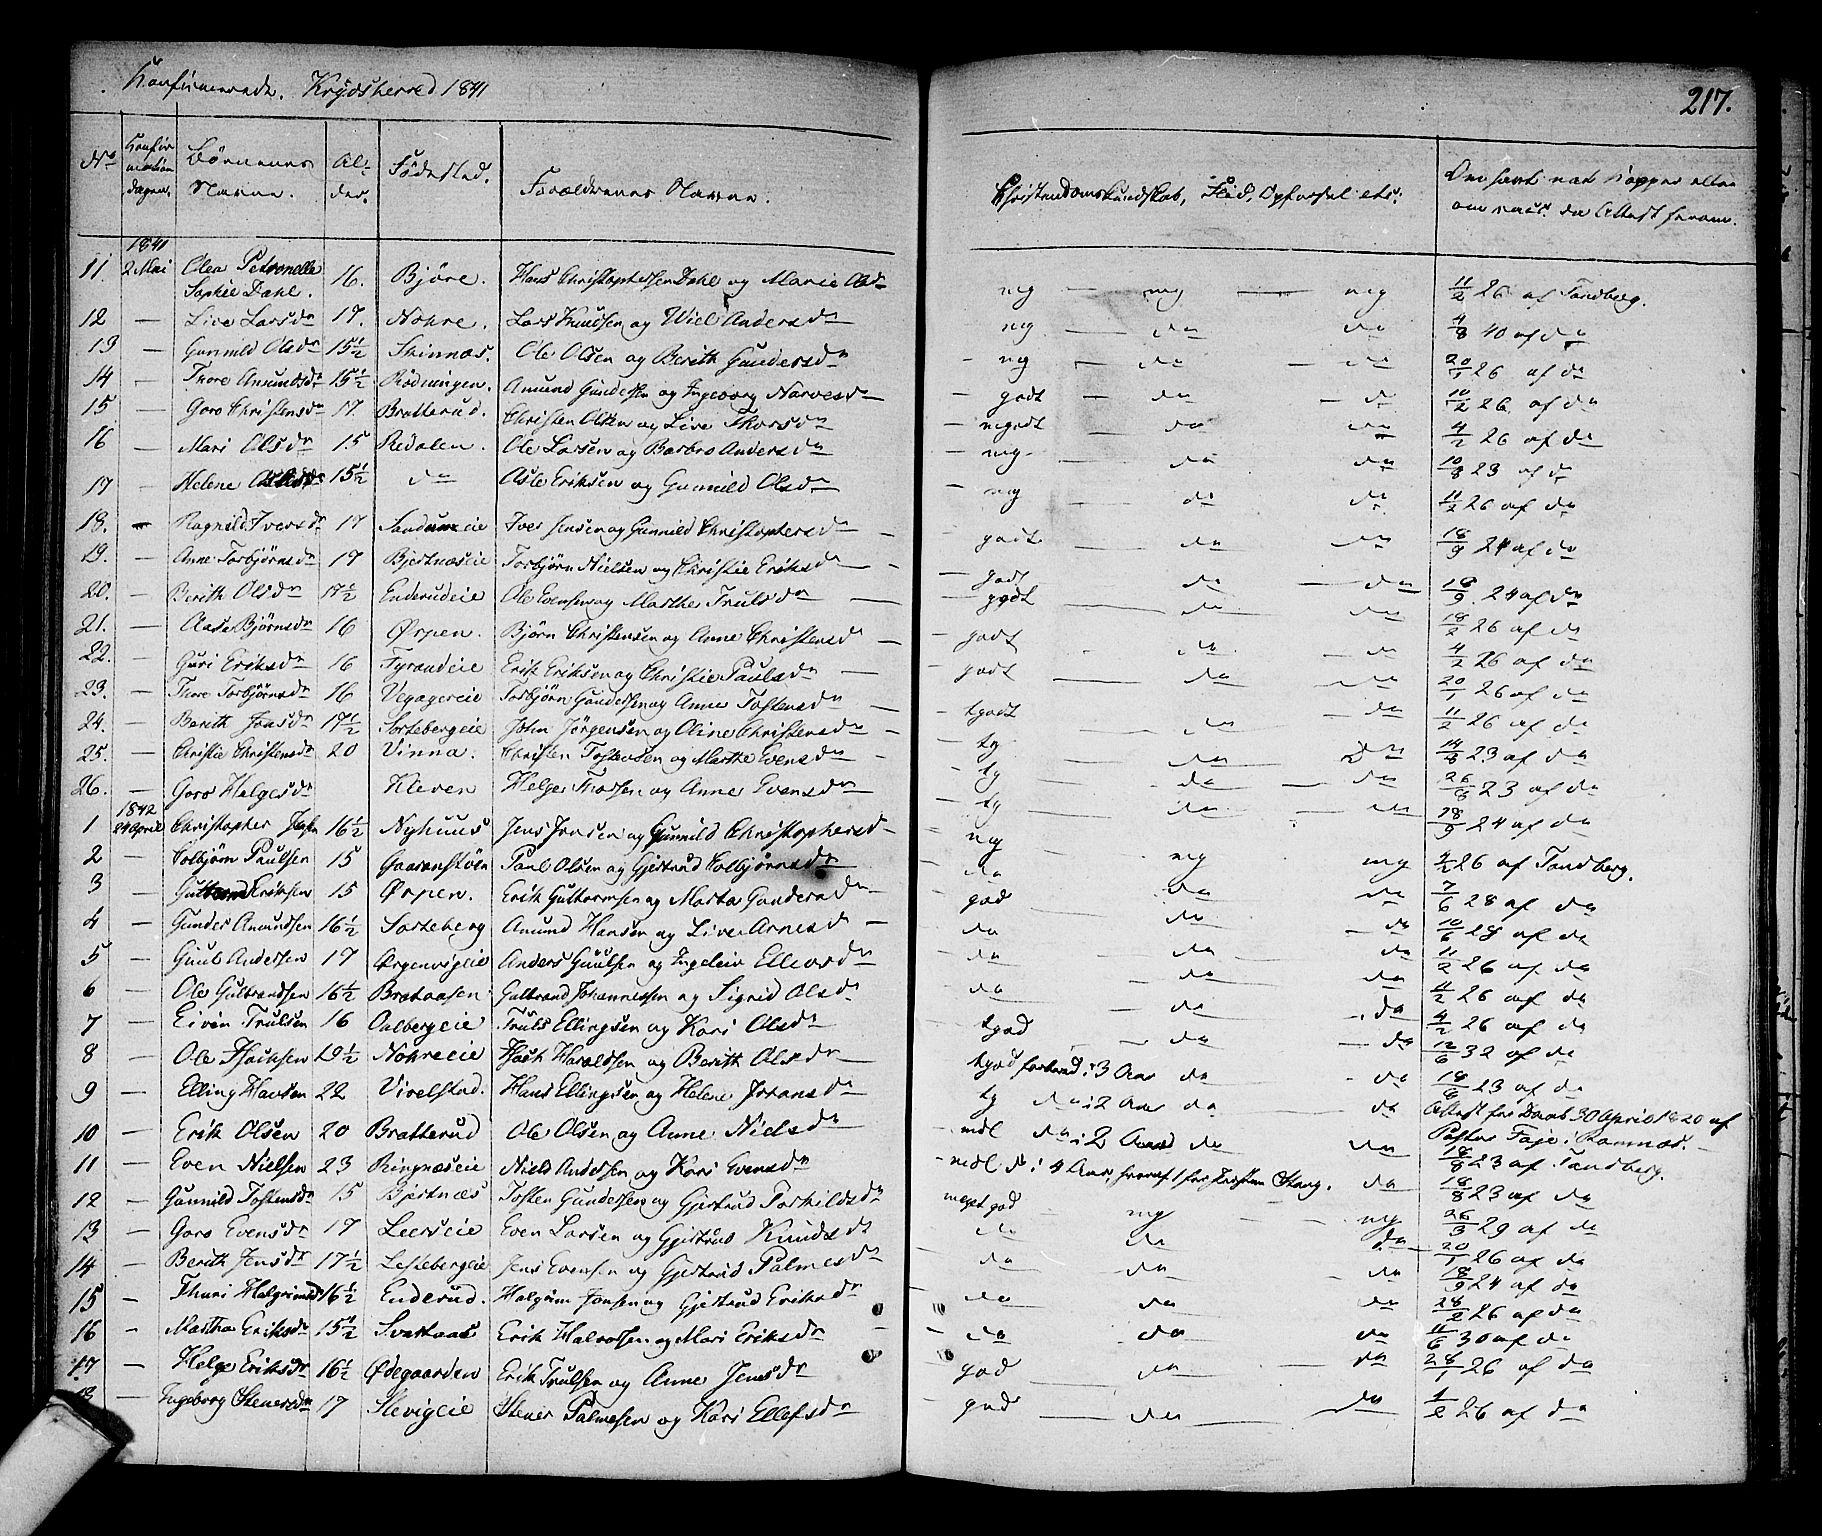 Konfirmerede. Krydsherred 1841
217.
No Konfirmations dagen. Børnenes Navne. Alder. Fødested. Forældrenes Navne. Christendomskundskab, Flid, Opførsel etc:
1841
11. 2 Mai Olea Petronelle Sophie Dahl. 16. Bjøre. Hans Christophersen Dahl og Marie Olsdr mg — mg — mg 11/2 26 af Tandberg.
12 — Live Larsdr 17. Nøhre. Lars Knudsen og Wiel Andersdr mg — da da 4/8 40 af do
13 — Gunnild Olsdr 15½ Skinnæs. Ole Olsen og Berith Gundersdr mg — da da 20/1 26 af do
14 — Thore Amundsdr 15½ Rødningen. Amund Gundersen og Ingeborg Narvesdr godt — da — da 10/2 26 af do
15 — Goro Christensdr 17. Bratterud. Christen Olsen og Live Thorsdr mgodt — da da 4/2 26 af do
16 — Mari Olsdr 15 Redalen. Ole Larsen og Barbro Andersdr mg — da da 10/8 23 af do
17 — Helene Aslesdr 15½ do Asle Eriksen og Gunnild Olsdr mg — da da 11/2 26 af do
18. — Ragnild Iversdr 17 Sandumeie Iver Jensen og Gunnild Christophersdr godt — da da 18/9 24 af do
19. — Anne Torbjørnsdr 17 Bjertnæseie Torbjørn Nielsen og Christie Eriksdr godt da — da 18/9 24 af do
20. — Berith Olsdr 17½ Enderudeie Ole Evensen og Marthe Trulsdr godt — da da 18/2 26 af do
21. — Aase Bjørnsdr 16 Ørpen. Bjørn Christensen og Anne Christensdr godt — da da 4/2 26 af do
22. — Guri Eriksdr 16 Tyrandeie Erik Eriksen og Christie Paulsdr godt — da da 20/1 26 af do
23. — Thore Torbjørnsdr 16 Vegagereie Torbjørn Gundersen og Anne Tostensdr tgodt — da da 11/2 26 af do
24. — Berith Jonsdr 17½ Sortebergeie John Jørgensen og Oline Christensdr tg da da 14/8 23 af do
25. — Christie Christensdr 20 Vinna. Christen Tostensen og Marthe Evensdr tg da da 26/8 23 af do
26. — Goro Helgesdr Kleven Helge Thorsen og Anne Evensdr tg da da 18/9 24 af do
1842
1 24 April Christopher 16½ Nyhuus Jens Jensen og Gunnild Christophersdr mg mg mg 4/2 26 af Tandberg.
2 — Colbjørn Paulsen 15 Paul Olsen og Gjertrud Colbjørnsdr da da da 7/6 28 af do
3 — Guttorm Eriksen 15 Ørpen. Erik Guttormsen og Marta Gundersdr god — da da 10/6 28 af do
4 — Gunder Amundsen 16½ Sorteberg Amund Hansen og Live Arnesdr da — da da 11/2 26 af do
5 — Guul Andersen 17 Ørgenvigeie Anders Guulsen og Ingeleiv Ellevsdr da — da da 4/2 26 af do
6 — Ole Gulbrandsen 16½ Brataasen Gulbrand Johannessen og Sigrid Olsdr da — da da 4/2 26 af do
7 — Eivin Trulsen 16 Oalbergeie Truls Ellingsen og Kari Olsdr tgod — da da 12/6 32 af do
8 — Ole 19½ Nøhreeie Haralsen og Berith Olsdr tgod forhend i 3 Aar da — da 18/8 23 af do
9 — Elling Hansen 22 Vivelstad. Hans Ellingsen og Helene Johansdr tg do i 2 Aar da — da Attest fra 30 April 1820 af
10 — Erik Olsen 20 Bratterud Ole Olsen og Anne Nielsdr mdl do i 2 Aar da da Pastor Faye i Ramnæs.
11 — Even Nielsen 23 Ringnæseie Niels Andersen og Kari Evensdr mdl do i 4 Aar, hvoraf 1 for Stang. da 18/8 23 af Tandberg.
12 — Gunnild Tostensdr 15 Bjertnæs Tosten Gundersen og Gjertrud Torkildsdr meget god mg — mg 18/8 23 af do
13. — Goro Evensdr 17 Leerseie Even Larsen og Gjertrud Knudsdr da da da 26/3 29 af do
14 — Berith Jensdr 17½ Leslebergeie Jens Evensen og Gjertrud Palmesdr da da da 20/1 26 af do
15 — Thuri Halgrimsdr 16½ Enderud. Halgrim Jonsen og Gjertrud Eriksdr da da da 18/9 24 af do
16 — Martha Eriksdr 15½ Svartaas Erik Halvorsen og Mari Eriksdr da da da 28/2 26 af do
17 — Helge Eriksdr 16½ Ødegaarden Erik Trulsen og Anne Jensdr god da da 11/6 30 af do
18 — Ingeborg Stenersdr 17 Slevigeie Stener Palmesen og Kari Ellefsdr god — da da 28/1 26 af do
1/2 26 af do